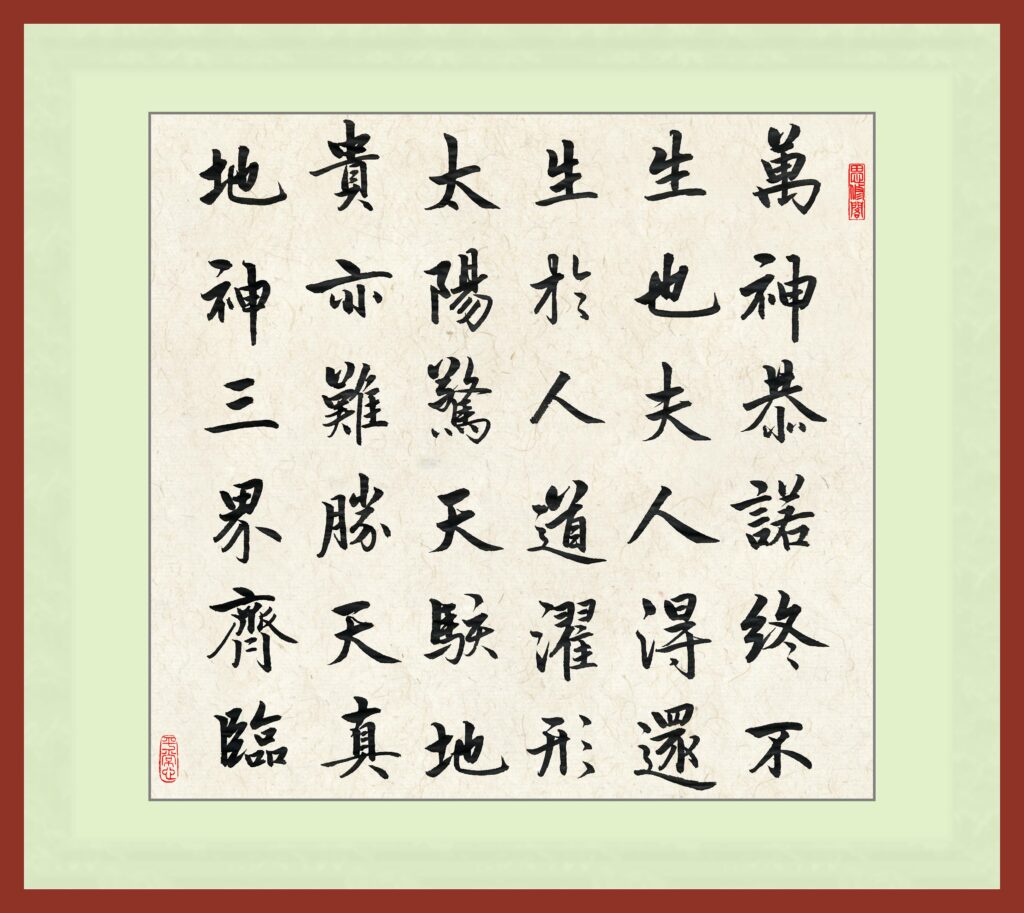 萬神恭諾終不
生也夫人得還
生於人道濯形
太陽驚天駭地
貴亦難勝天真
地神三界齊臨